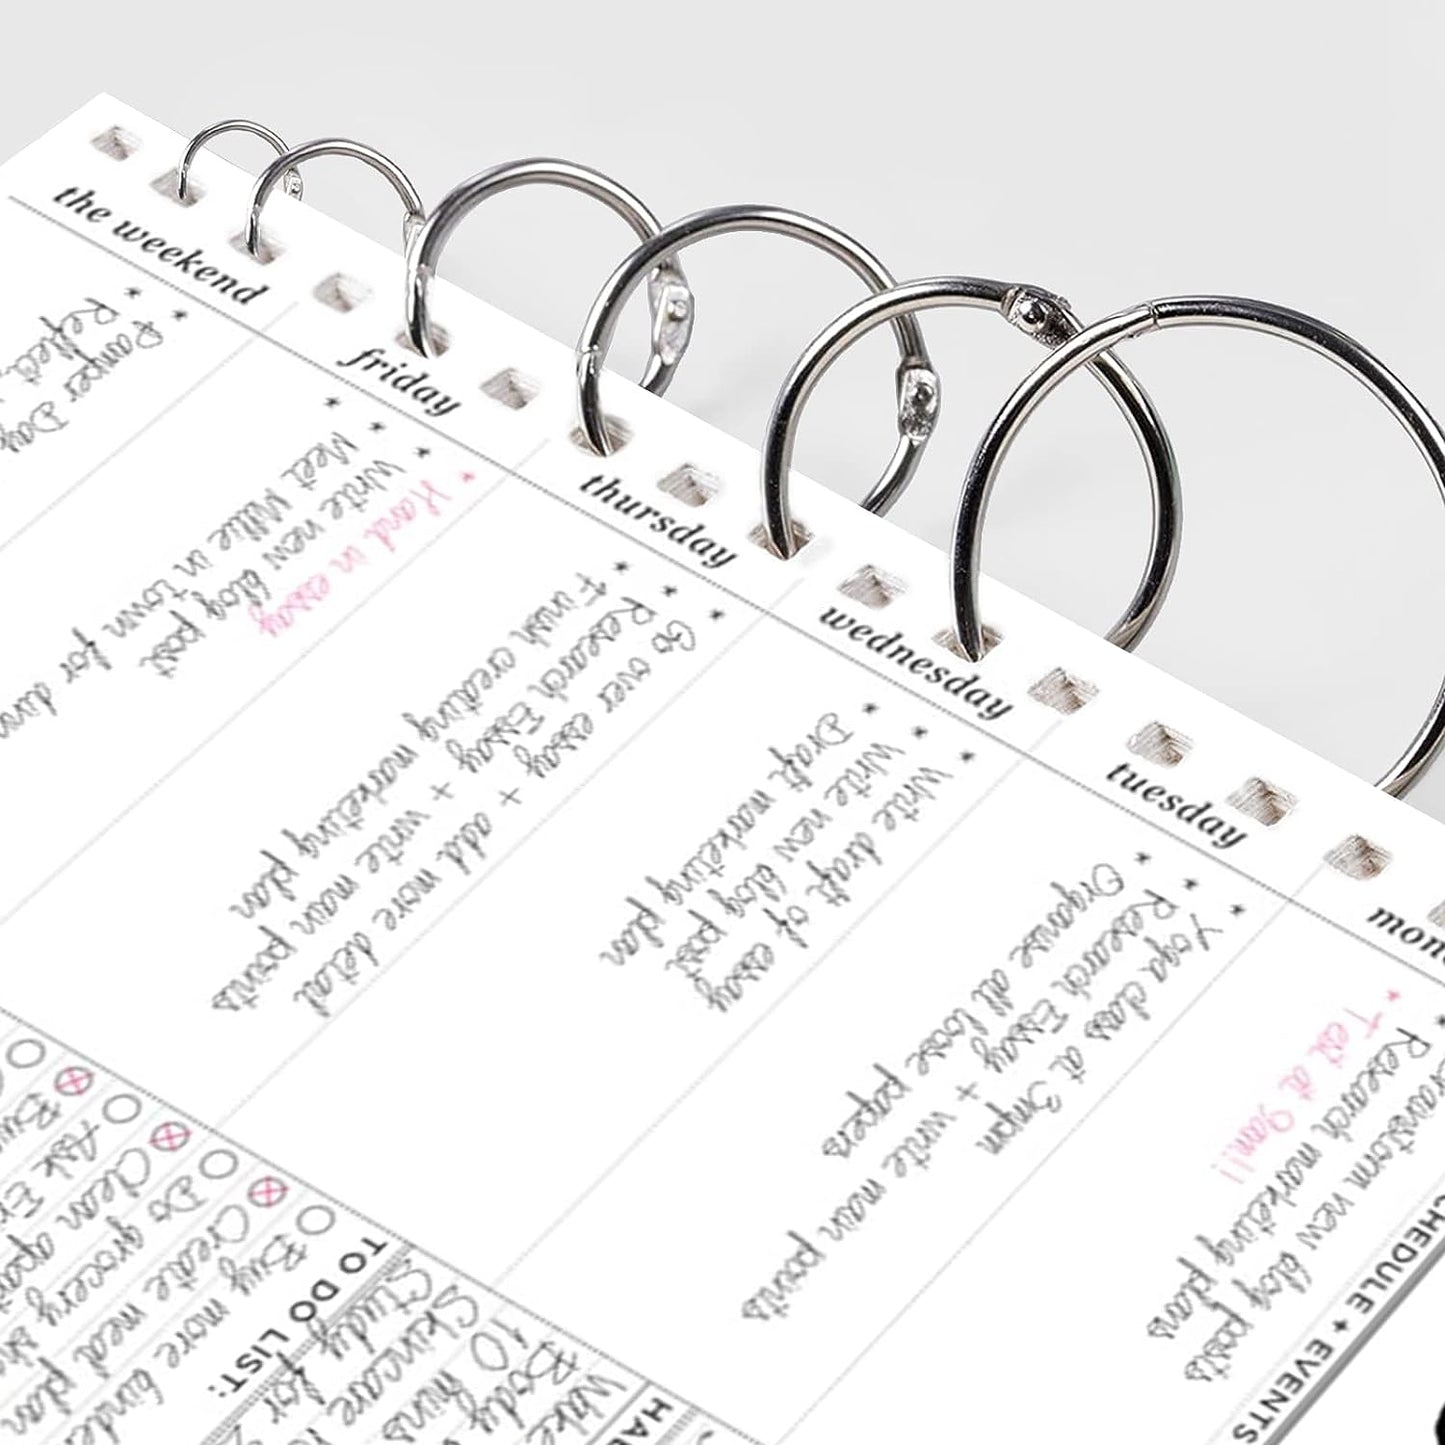 SCHEDULE + EVENTS
mon
* Test at 9am!!
* Research marketing plans
* Brainstorm new blog posts
tuesday
* Yoga class at 3mpm
* Research Essay + write main points
* Organise all loose papers
wednesday
* Write draft of essay
* Write new blog post
* Draft marketing plan
thursday
* Go over essay + add more detail
* Research Essay + write main points
* Finish creating marketing plan
friday
* Hand in essay
* Write new blog post
* Meet Millie in town for
the weekend
* Pamper Day
* Reflect
HA
Wake
Body
10 mins
Skincare
Study for 2
TO DO LIST:
Buy more binder
Create meal plan
Do grocery
Clean apart
Ask
Buy